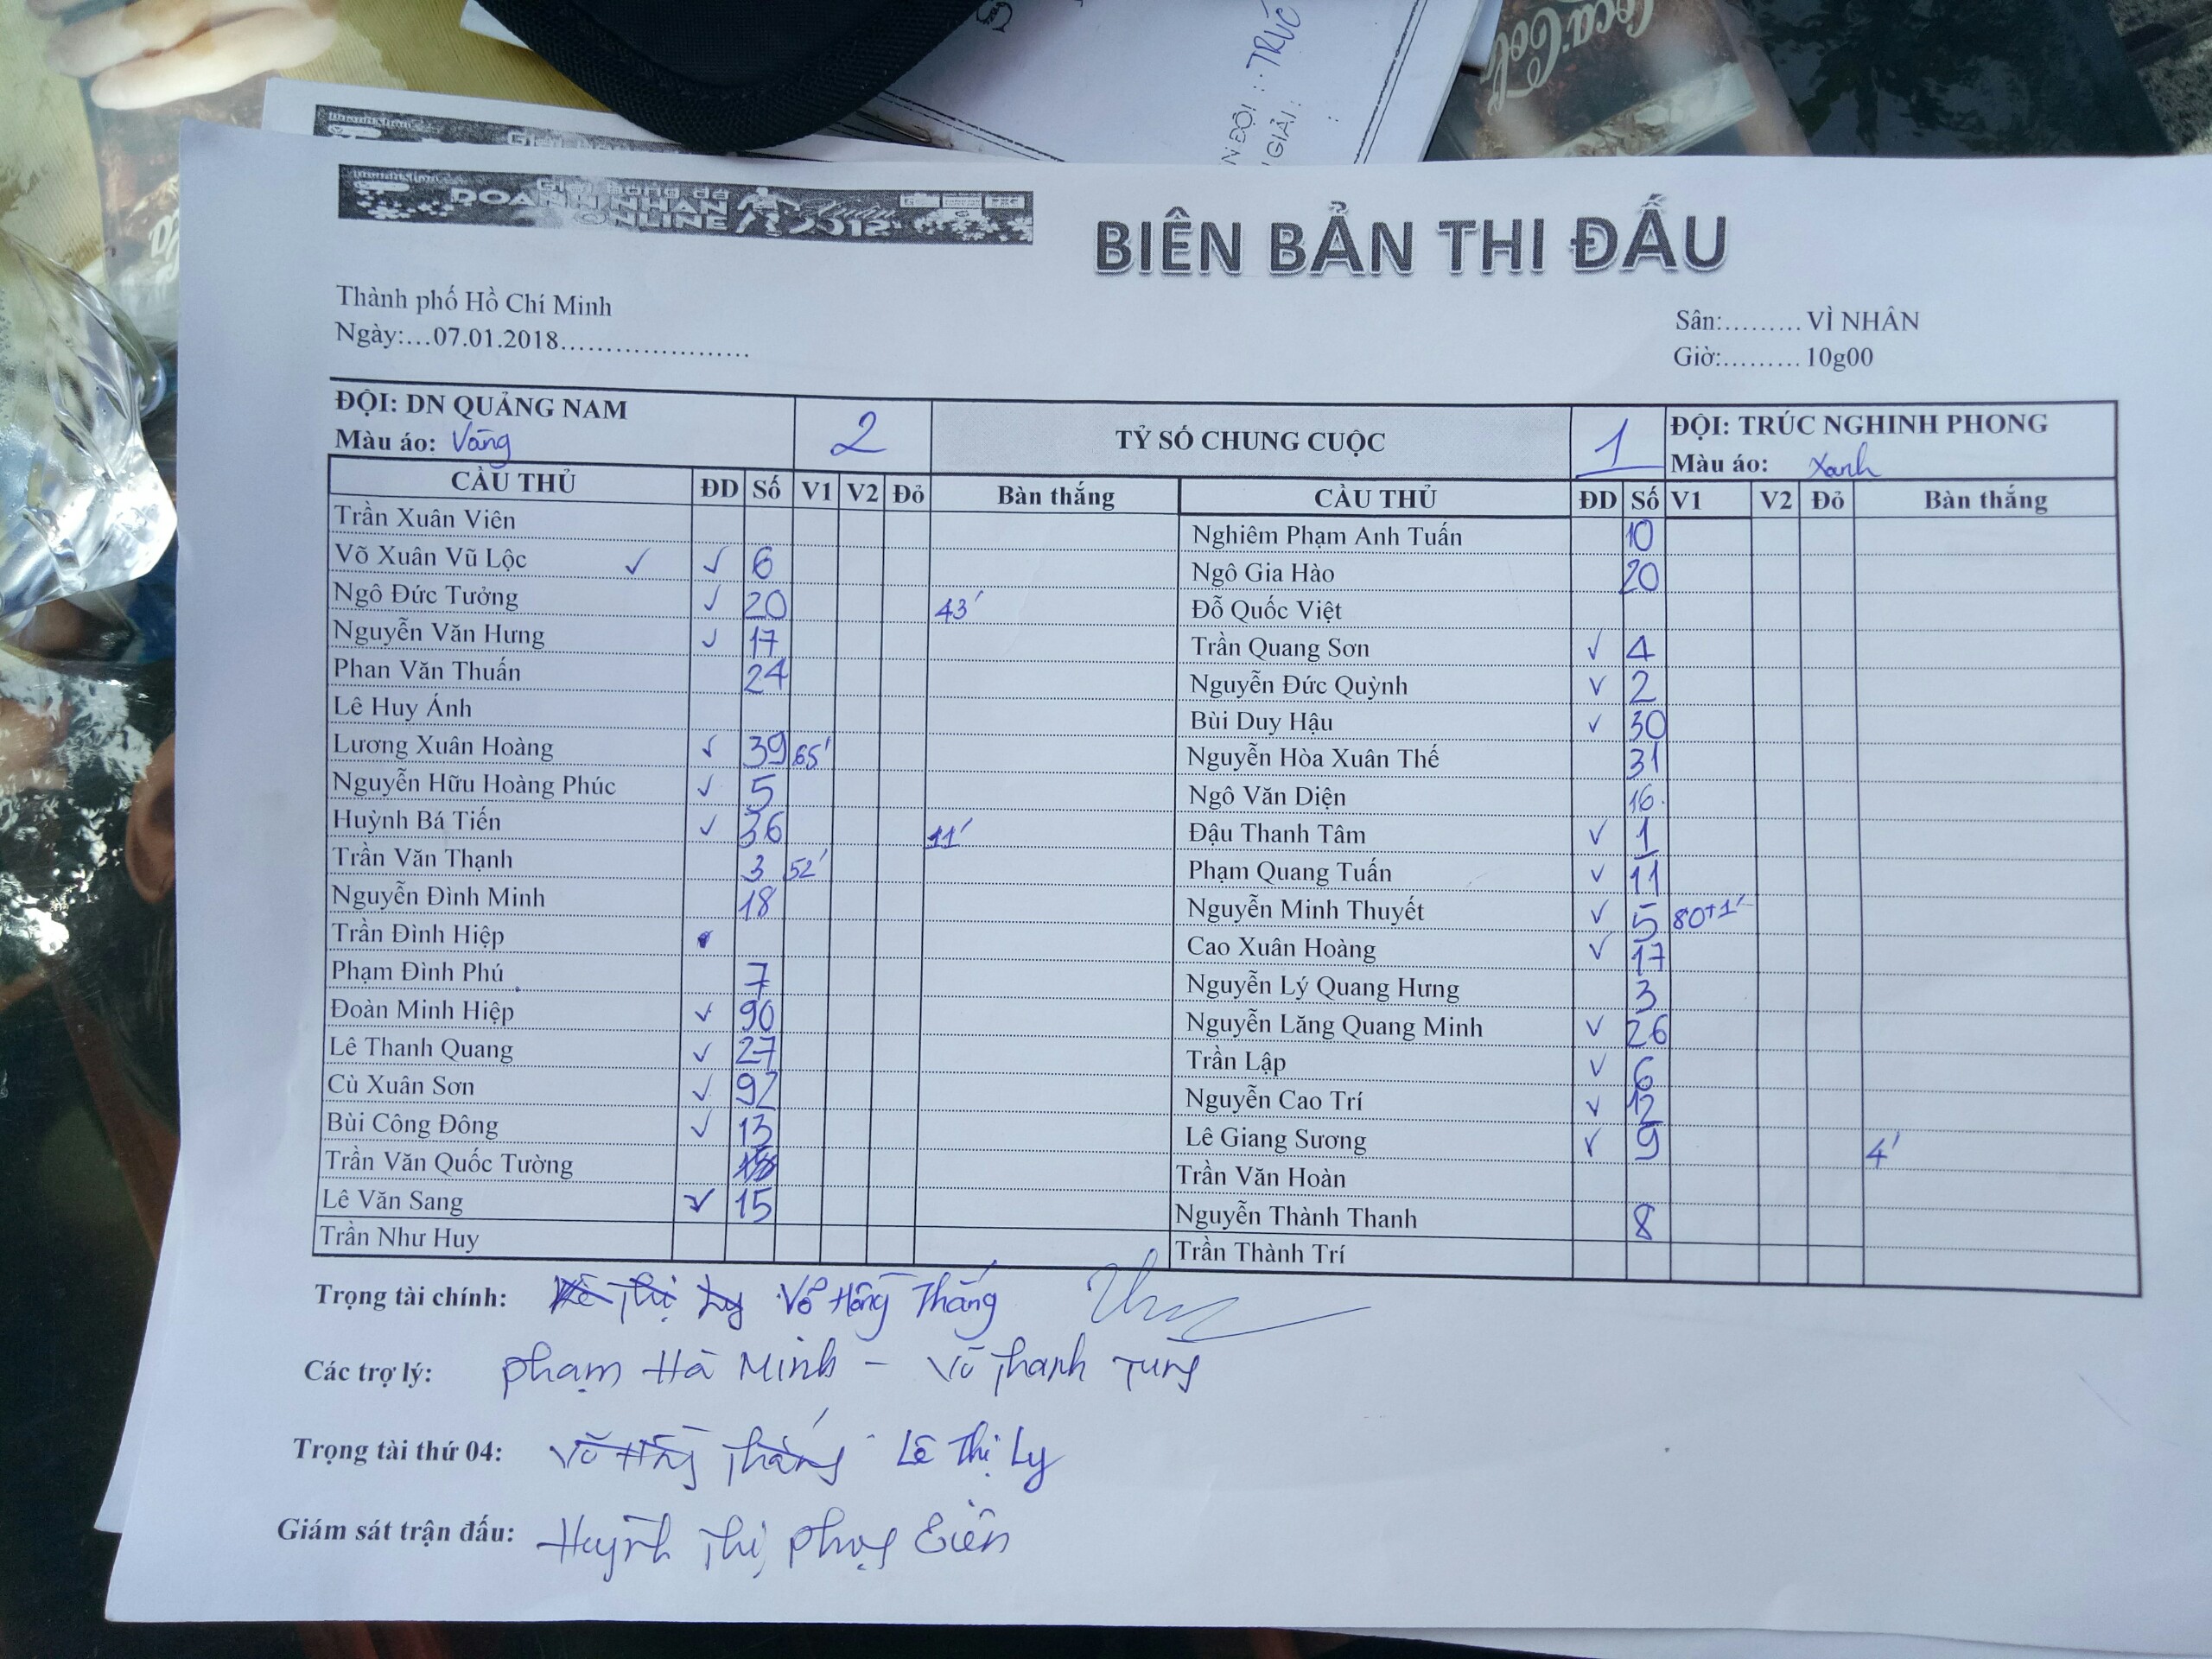 Coca-Cola
N ĐỘI : TRÚC
GIẢI :
Giải bóng đá
DOANH NHÂN
ONLINE 2018
BIÊN BẢN THI ĐẤU
Thành phố Hồ Chí Minh
Ngày:...07.01.2018......................
Sân:......... VÌ NHÂN
Giờ:......... 10g00
ĐỘI: DN QUẢNG NAM 2 TỶ SỐ CHUNG CUỘC 1 ĐỘI: TRÚC NGHINH PHONG
Màu áo: Vàng Màu áo: Xanh
CẦU THỦ ĐD Số V1 V2 Đỏ Bàn thắng CẦU THỦ ĐD Số V1 V2 Đỏ Bàn thắng
Trần Xuân Viên Nghiêm Phạm Anh Tuấn 10
Võ Xuân Vũ Lộc ✓ ✓ 6 Ngô Gia Hào 20
Ngô Đức Tưởng ✓ 20 43' Đỗ Quốc Việt
Nguyễn Văn Hưng ✓ 17 Trần Quang Sơn ✓ 4
Phan Văn Thuấn 24 Nguyễn Đức Quỳnh ✓ 2
Lê Huy Ánh Bùi Duy Hậu ✓ 30
Lương Xuân Hoàng ✓ 39 65' Nguyễn Hòa Xuân Thế 31
Nguyễn Hữu Hoàng Phúc ✓ 5 Ngô Văn Diện 16
Huỳnh Bá Tiến ✓ 36 11' Đậu Thanh Tâm ✓ 1
Trần Văn Thạnh 3 52' Phạm Quang Tuấn ✓ 11
Nguyễn Đình Minh 18 Nguyễn Minh Thuyết ✓ 5 80+1'
Trần Đình Hiệp Cao Xuân Hoàng ✓ 17
Phạm Đình Phú 7 Nguyễn Lý Quang Hưng 3
Đoàn Minh Hiệp ✓ 90 Nguyễn Lăng Quang Minh ✓ 26
Lê Thanh Quang ✓ 27 Trần Lập ✓ 6
Cù Xuân Sơn ✓ 92 Nguyễn Cao Trí ✓ 12
Bùi Công Đông ✓ 13 Lê Giang Sương ✓ 9 4'
Trần Văn Quốc Tường Trần Văn Hoàn
Lê Văn Sang ✓ 15 Nguyễn Thành Thanh 8
Trần Như Huy Trần Thành Trí
Trọng tài chính: Lê Thị Ly Võ Hồng Thắng
Các trợ lý: Phạm Hà Minh - Võ Thanh Tùng
Trọng tài thứ 04: Võ Hồng Thắng Lê Thị Ly
Giám sát trận đấu: Huỳnh Thị